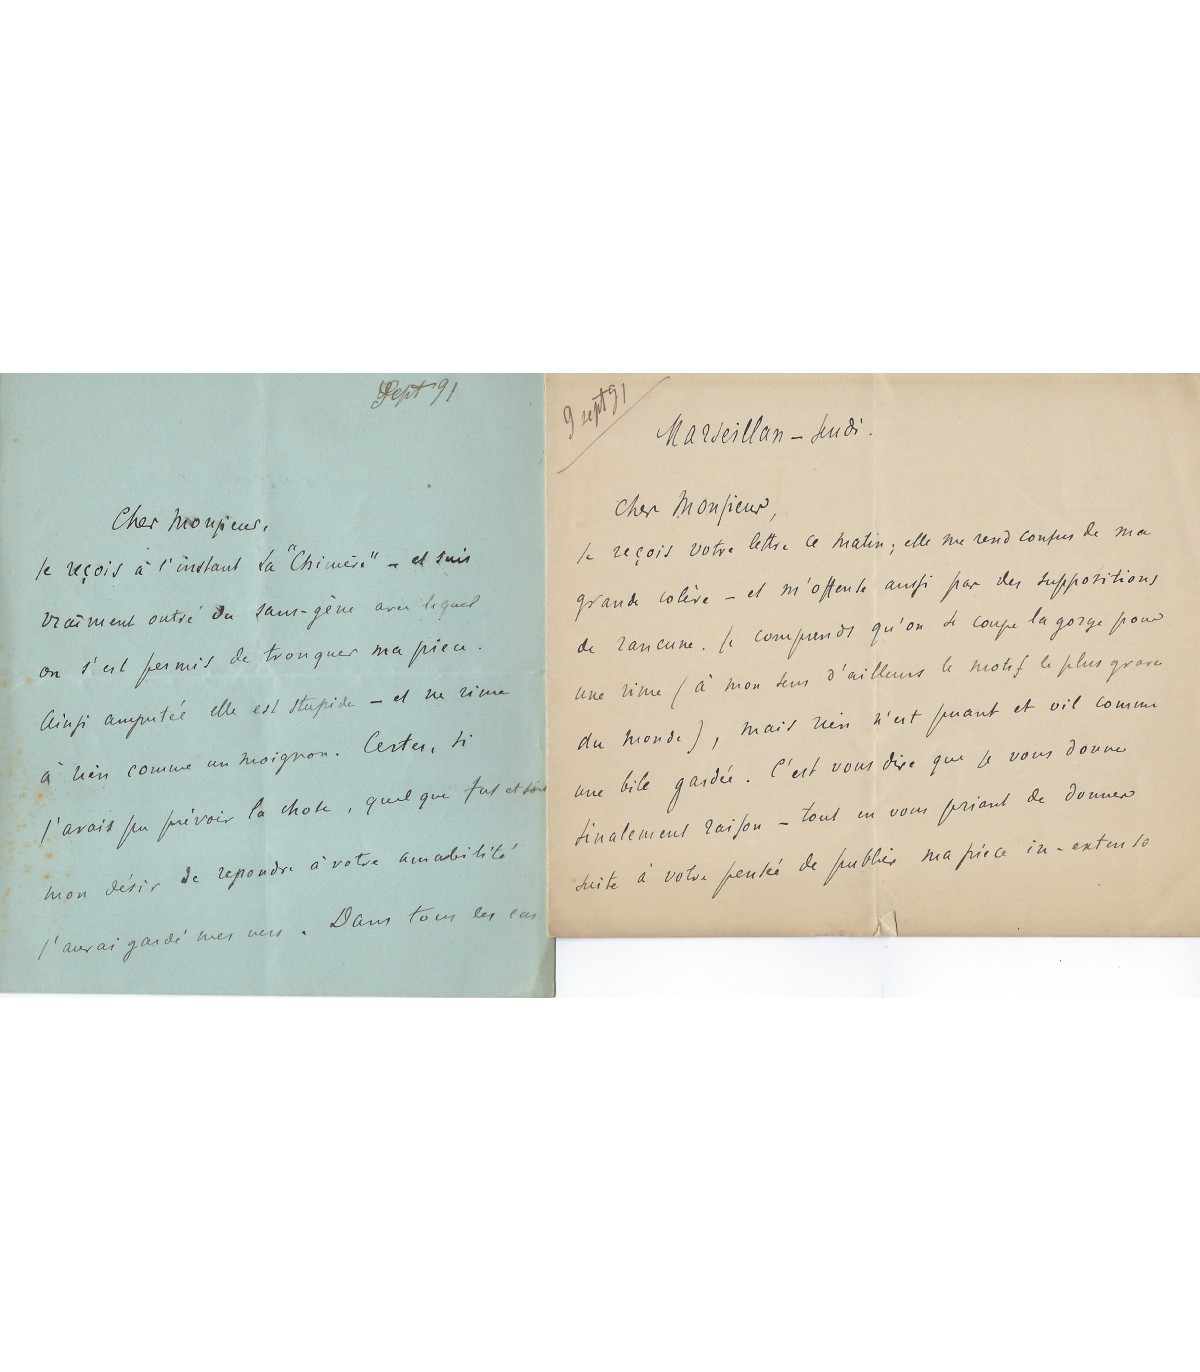 Sept 91
Cher Monsieur,
Je reçois à l'instant La "Chimère" – et suis
vraîment outré du sans-gêne avec lequel
on s'est permis de tronquer ma pièce.
Ainsi amputée elle est stupide – et ne rime
à rien comme un moignon. Certes, si
j'avais pu prévoir la chose, quel que fut et soit
mon désir de repondre à votre amabilité
j'aurai gardé mes vers. Dans tous les cas
9 sept 91
Marseillan – Jeudi.
Cher Monsieur,
Je reçois votre lettre ce matin; elle me rend confus de ma
grande colère – et m'offense aussi par des suppositions
de rancune. Je comprends qu'on se coupe la gorge pour
une rime (à mon sens d'ailleurs le motif le plus grave
du monde), mais rien n'est puant et vil comme
une bile gardée. C'est vous dire que je vous donne
finalement raison – tout en vous priant de donner
suite à votre pensée de publier ma pièce in-extenso